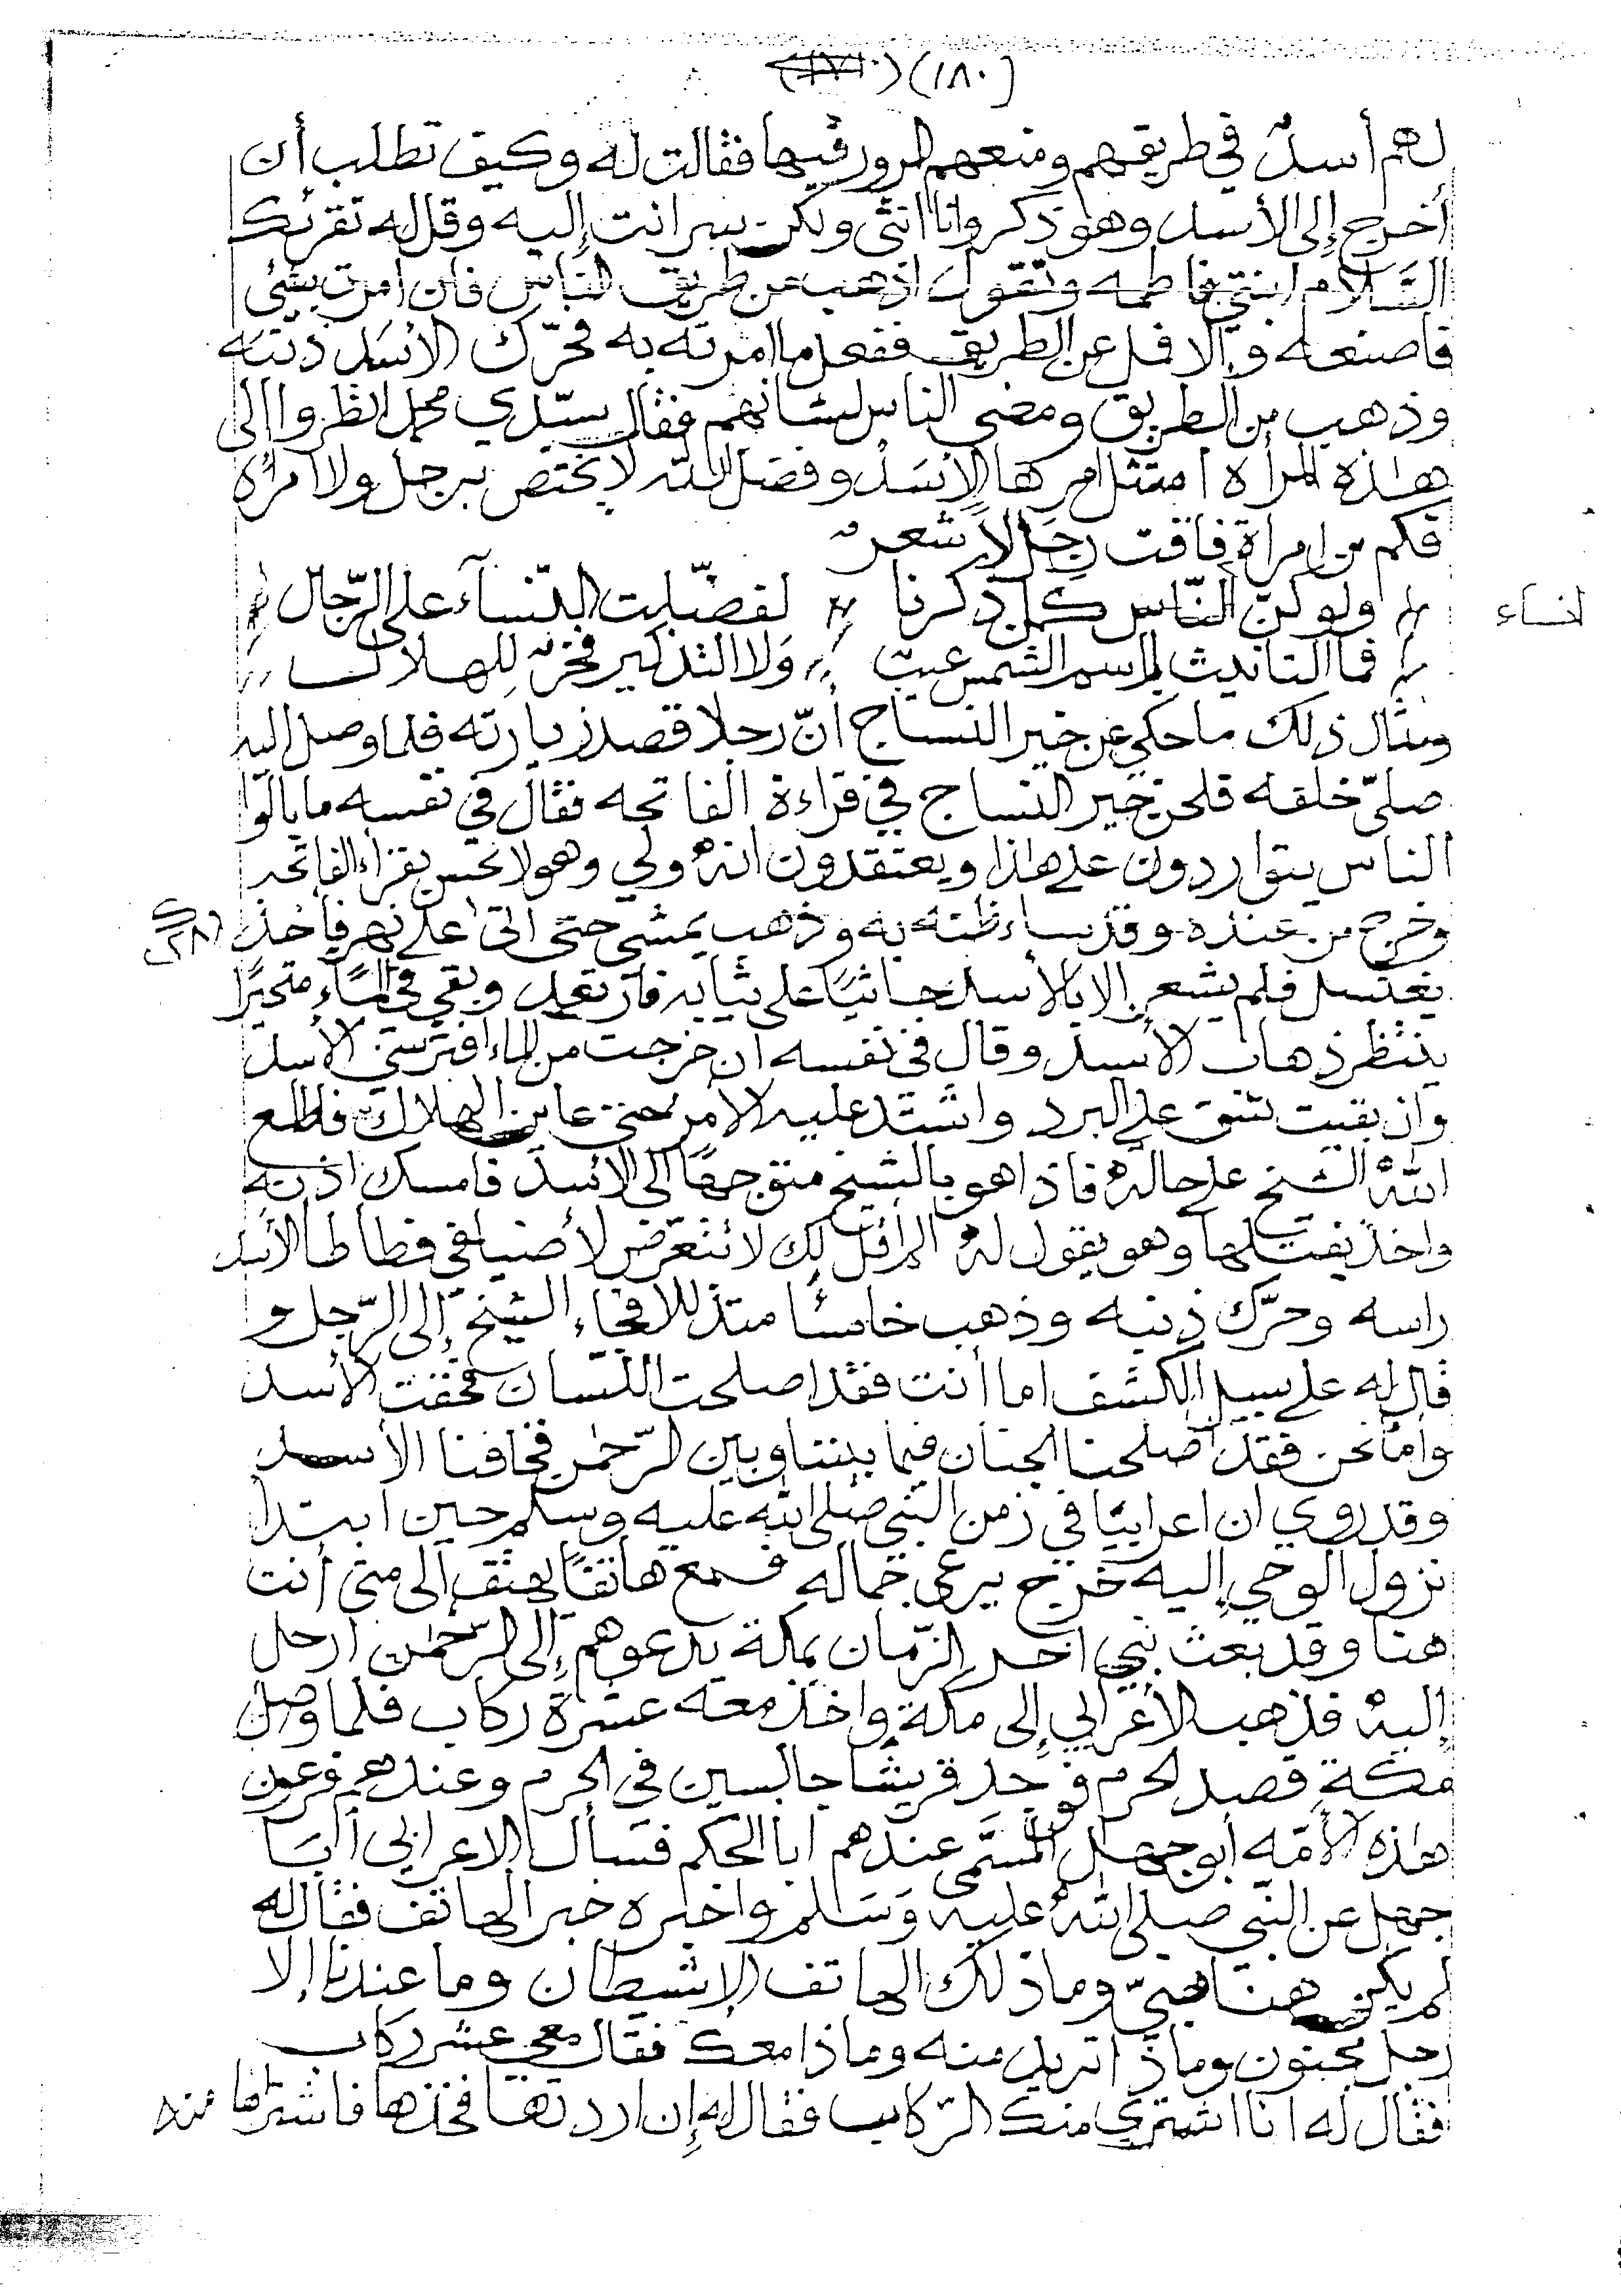 (١٨٠)
لهم أسدٌ في طريقهم ومنعهم المرور فيها فقالت له وكيف تطلب أن
أخرج إلى الأسد وهو ذكر وانا انثى ولكن سر انت إليه وقل له تقرئك
السَّلام ابنتي فاطمه وتقول اذهب عن طريق الناس فان امرت بشئ
فاصنعه والا فمل عن الطريق ففعل ما امرته به فحرّك الأسد ذنبه
وذهب من الطريق ومضى الناس لشانهم فقال سيّدي محمد انظروا إلى
هاذه المرأة امتثل امرها الأسد وفضل الله لا يختص برجل ولا امرأة
فكم من امرأة فاقت رجلا شعرٌ
ولو كنّ النّاس كمن ذكرنا لفضّلت النّسآء على الرّجال
لنساء
فما التانيث لاسم الشمس عيبٌ وَلا التذكير فخرٌ للهلال
ومثال ذلك ما حكي عن خير النساج أنّ رجلا قصد زيارته فلما وصل اليه
صلّى خلفه فلحن خير النساج في قراءة الفاتحه فقال في نفسه ما بال
الناس يتواردون على هاذا ويعتقدون انهُ ولي وهو لا يحسن يقرأ الفاتحه
وخرج من عنده وقد ساء ظنه به وذهب يمشي حتى اتى على نهر فأخذ
يغتسل فلم يشعر إلا بالأسد جاثيًا على ثيابه فارتعد وبقي في الماء متحيرًا
ينتظر ذهاب الأسد وقال في نفسه ان خرجت من الماء افترسني الأسد
وان بقيت شق علي البرد واشتد عليه الأمر حتى عاين الهلاك فاطلع
اللهُ الشيخ على حالهُ فاذا هو بالشيخ متوجهًا إلى الأسد فامسك اذنه
واخذ يفتلها وهو يقول لهُ الم اقل لك لا تتعرّض لأضيافي فطاطا الأسد
راسه وحرّك ذنبه وذهب خاسئًا متذللا فجاء الشيخ إلى الرّجل و
قال له على سبيل الكشف اما أنت فقد اصلحت اللسان فخفت الأسد
وأما نحن فقد أصلحنا الجنان فيما بيننا وبين الرّحمٰن فخافنا الأسد
وقد روي ان اعرابيًا في زمن النبي صلى الله عليه وسلم حين ابتدا
نزول الوحي إليه خرج يرعى جماله فسمع هاتفًا يهتف إلى متى أنت
هنا وقد بعث نبي اخر الزّمان بمكة يدعوهم إلى الرّحمٰن ارحل
إليهُ فذهب الأعرابي إلى مكة واخذ معه عشرة ركاب فلما وصل
مكة قصد الحرم فوجد قريشا جالسين في الحرم وعندهم فرعون
هاذه الأمّه أبو جهل المسمَّى عندهم ابا الحكم فسأل الاعرابي أبا
جهل عن النبي صلى اللهُ عليه وَسَلم واخبره خبر الهاتف فقال له
لم يكن هنا نبيّ وما ذلك الهاتف إلا شيطان وما عندنا إلا
رجل مجنون وماذا تريد منه وماذا معك فقال معي عشر ركاب
فقال له انا اشتري منك الرّكاب فقال له إن اردتها فخذها فاشتراها منه